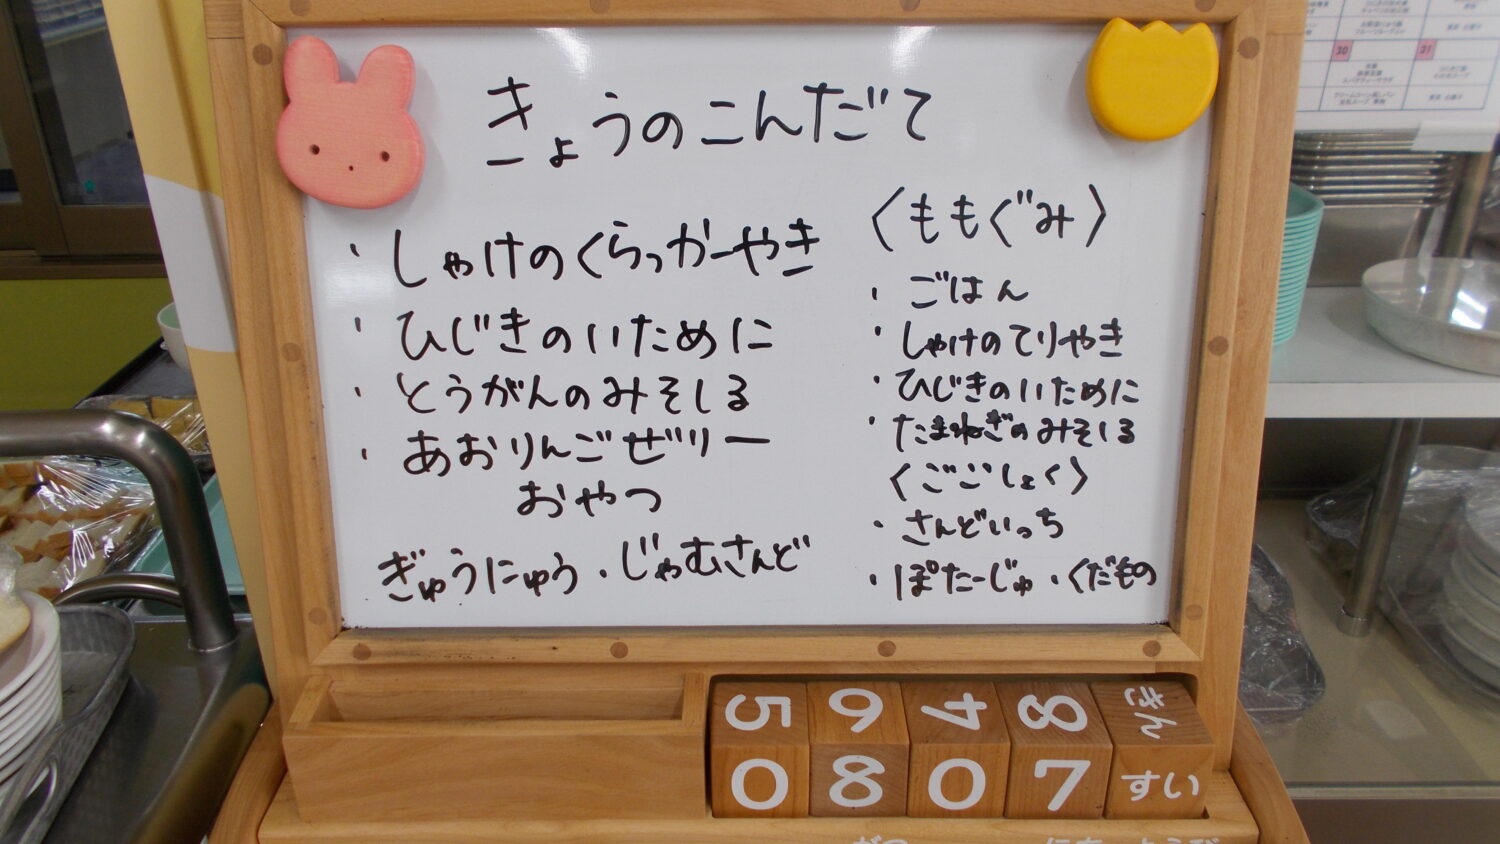 きょうのこんだて
・しゃけのくらっかーやき
・ひじきのいために
・とうがんのみそしる
・あおりんごぜりー
おやつ
ぎゅうにゅう・じゃむさんど
〈ももぐみ〉
・ごはん
・しゃけのてりやき
・ひじきのいために
・たまねぎのみそしる
〈ごごしょく〉
・さんどいっち
・ぽたーじゅ・くだもの
5 6 4 8 きん
0 8 0 7 すい
30 31